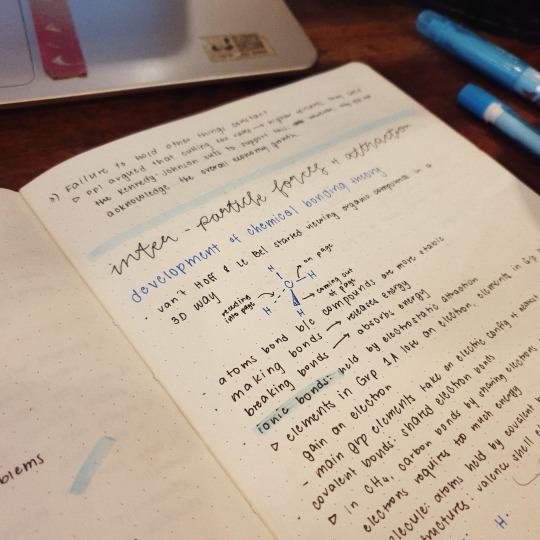 Failure to hold other things constant
the Kennedy-Johnson cuts to support this
acknowledge the overall economy growth
inter-particle forces & attraction
development of chemical bonding theory
van't Hoff & le Bel started viewing organic compounds in a
3D way
H
on page
C
H
receding
into page
H
H
coming out
of page
atoms bond b/c compounds are more stable
making bonds → releases energy
breaking bonds → absorbs energy
ionic bonds: held by electrostatic attraction
elements in Grp 1A lose an electron, elements in Grp
gain an electron
- main grp elements take on electric config of
covalent bonds: shared electron bonds
in CH4, carbon bonds by sharing electrons
electrons requires too much energy
molecule: atoms held by covalent
structures: valence shell
H
blems